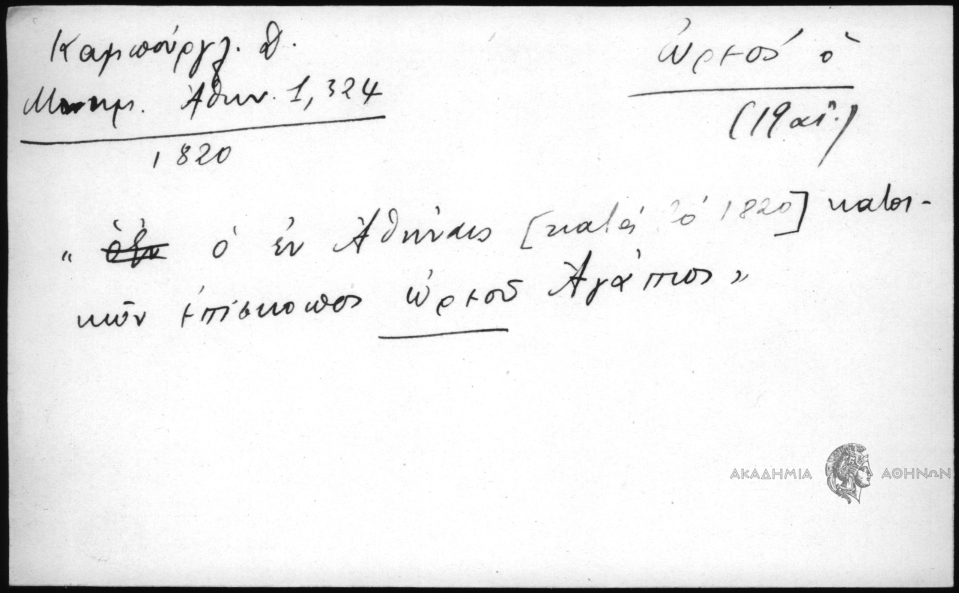 Καμπούργλ. Δ.
Μνημ. Ἀθην. 1,324
1820
ὠρεός ὁ
(19 αἰ.)
" ὁ ἐν Ἀθήναις [κατά τό 1820] κατοι-
κῶν ἐπίσκοπος ὠρεοῦ Ἀγάπιος "
ΑΚΑΔΗΜΙΑ ΑΘΗΝΩΝ